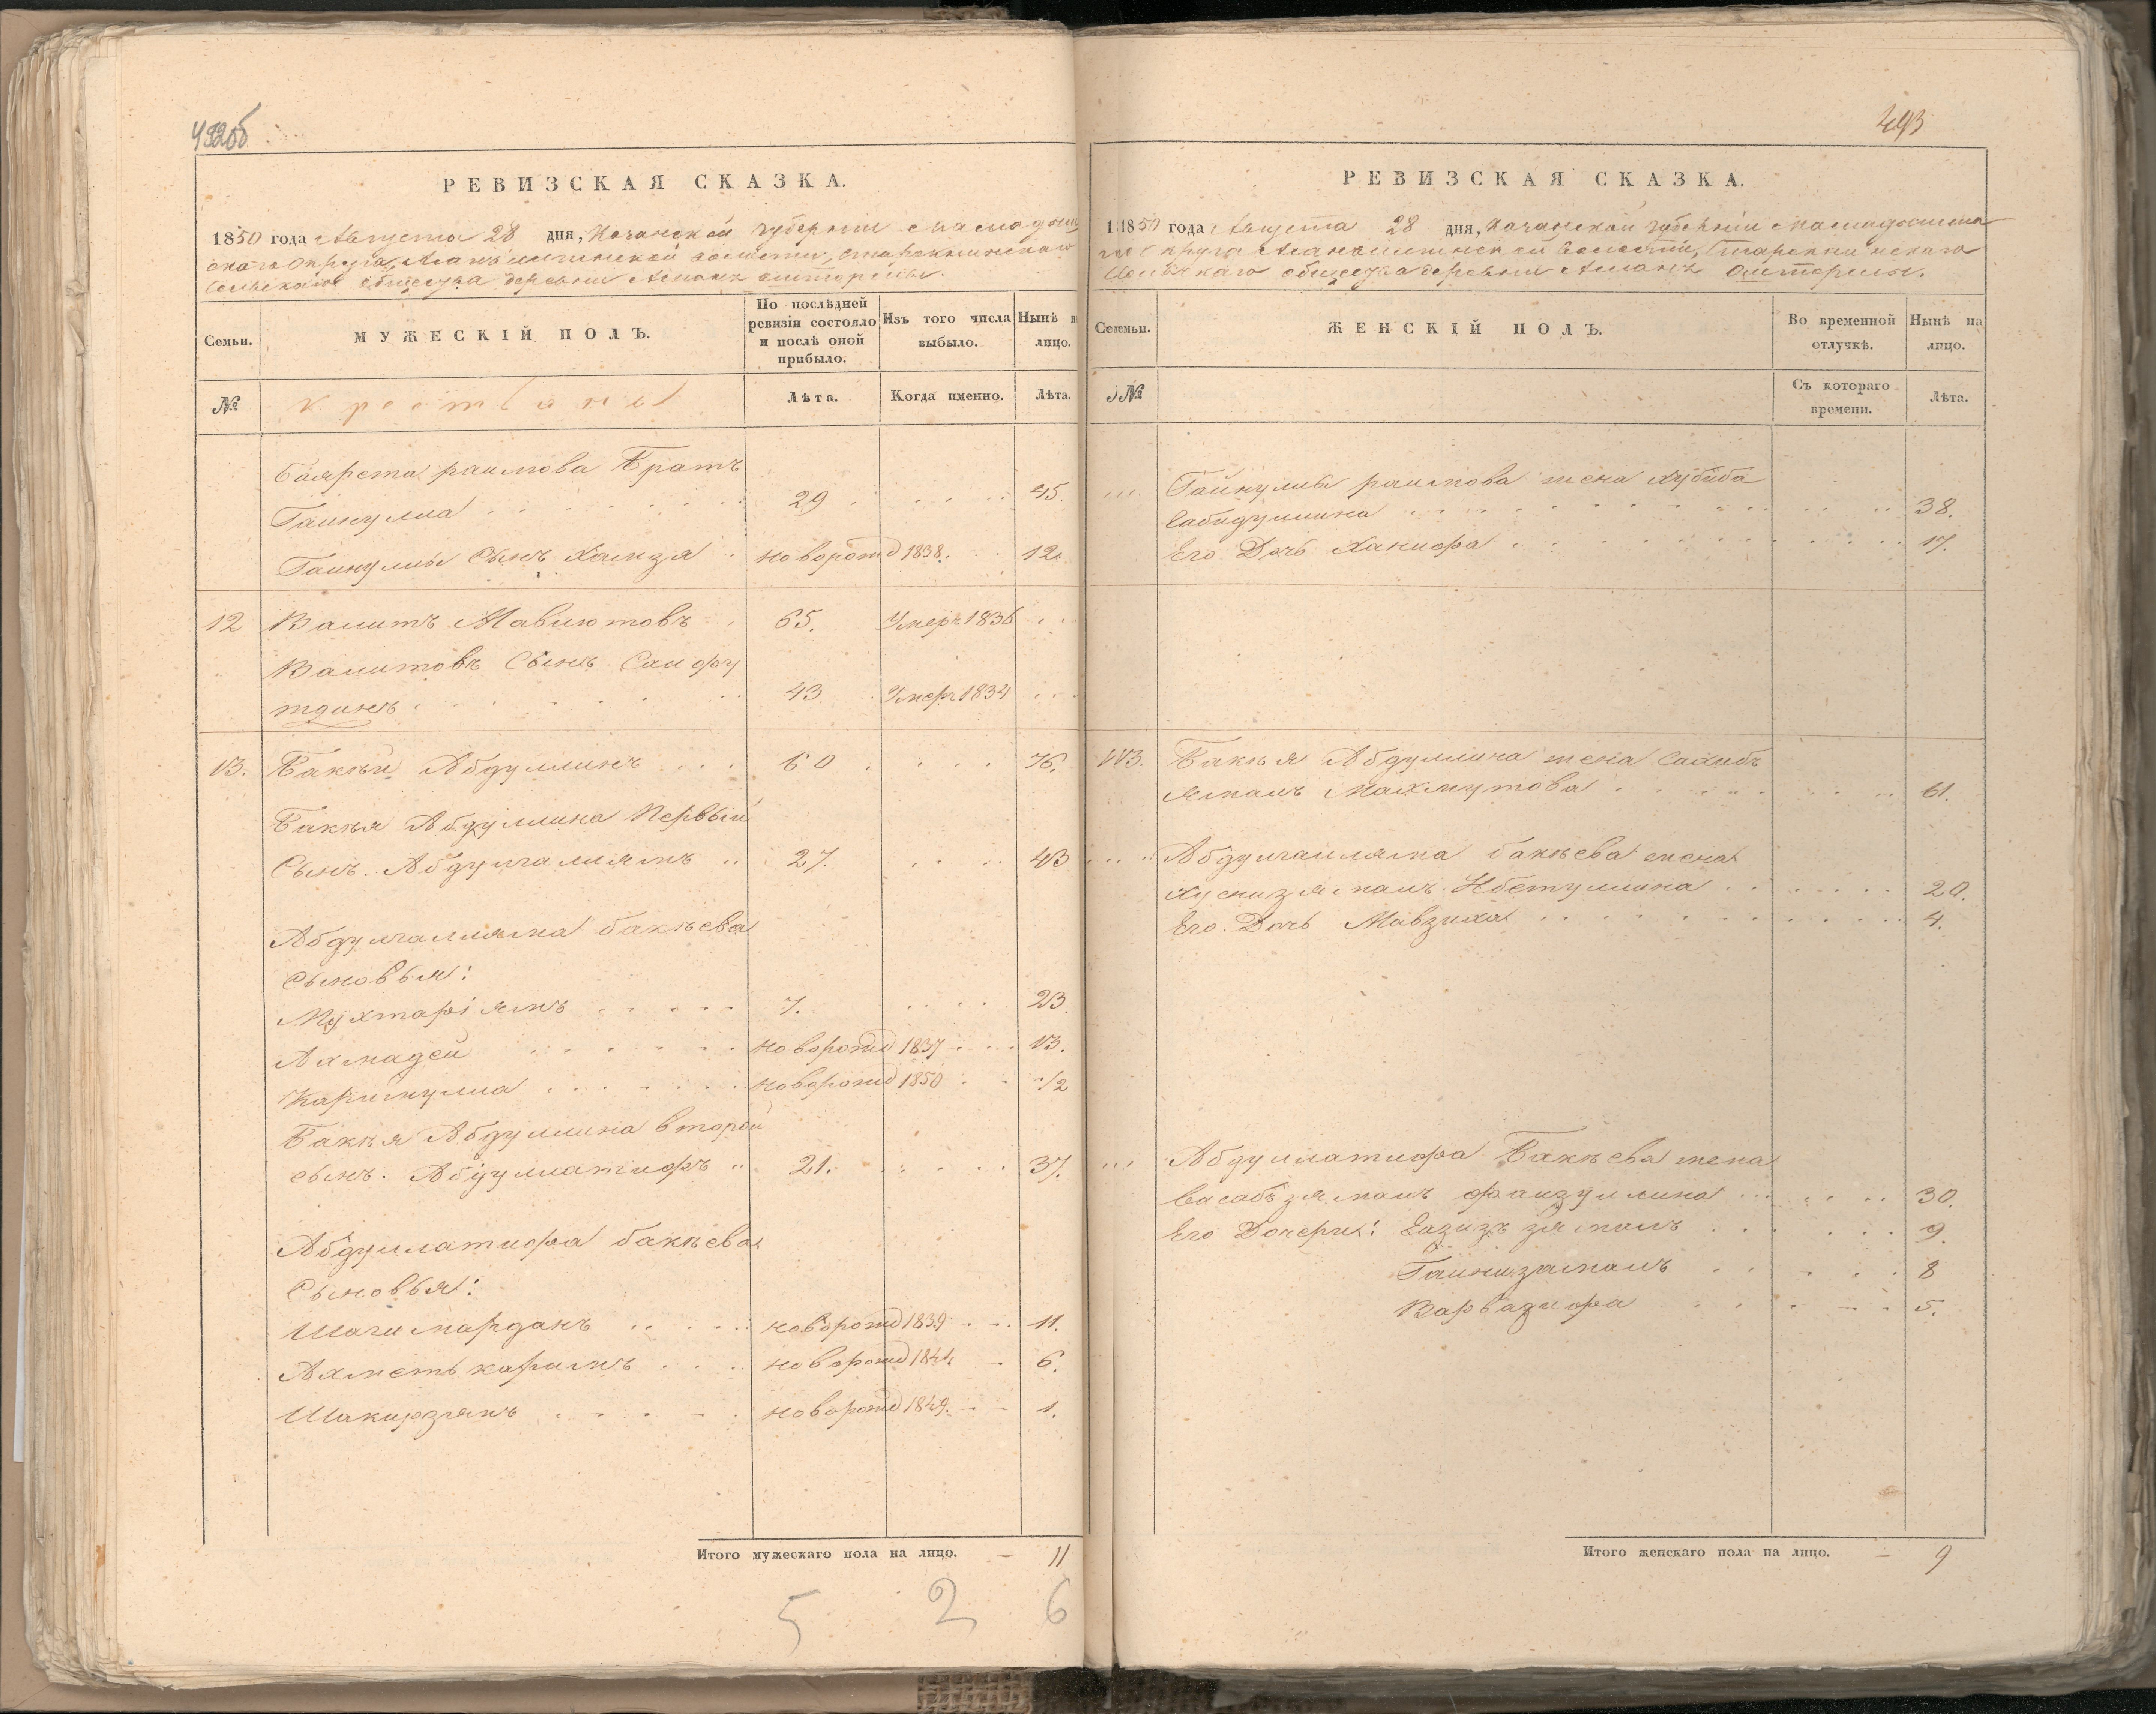 492об
РЕВИЗСКАЯ СКАЗКА.
1850 года Августа 28 дня, Казанской губерніи Спасмадыш
скаго округа,
сельскаго общества деревни
Семьи.
МУЖЕСКІЙ ПОЛЪ.
По послѣдней ревизіи состояло и послѣ оной прибыло.
Изъ того числа выбыло.
Нынѣ на лицо.
№
крестьяне
Лѣта.
Когда именно.
Лѣта.
Баярста раилова Братъ
Гайнулла 29 45.
Гайнуллы Сынъ Хамза новорожд 1838. 12.
12 Валитъ Мавлютовъ 65. Умеръ 1836
Валитовъ Сынъ Сайфу
тдинъ 43 Умеръ 1834
13. Бакѣй Абдуллинъ 60 76.
Бакѣя Абдуллина Первый
Сынъ. Абдулгалямъ 27. 43
Абдулгаляма бакѣева
Сыновья:
Мухтаріямъ 7. 23
Ахмадей новорожд 1837 13.
Каримулла новорожд 1850 1/2
Бакѣя Абдуллина второй
сынъ. Абдуллатифъ 21. 37.
Абдуллатифа бакѣева
Сыновья:
Шагимарданъ новорожд 1839 11.
Ахметькаримъ новорожд 1844 6.
Шакирзянъ новорожд 1849. 1.
Итого мужескаго пола на лицо. — 11
5 2 6
493
РЕВИЗСКАЯ СКАЗКА.
1850 года Августа 28 дня, Казанской губерніи
сельскаго общества деревни
Семьи.
ЖЕНСКІЙ ПОЛЪ.
Во временной отлучкѣ.
Нынѣ на лицо.
№
Съ котораго времени.
Лѣта.
Гайнуллы раилова жена Хубиба
Сабидуллина 38.
Его Дочь Ханифа 17.
13. Бакѣя Абдуллина жена Сахибъ
ямалъ Махмутова 61.
Абдулгаляма бакѣева жена
Хуснизямалъ Ибетуллина 20.
Его Дочь Мавзиха 4.
Абдуллатифа Бакѣева жена
Васабъзямалъ файзуллина 30.
Его Дочери: Газизъзямалъ 9.
Гайнизамалъ 8
Варвазифа 5.
Итого женскаго пола на лицо. — 9